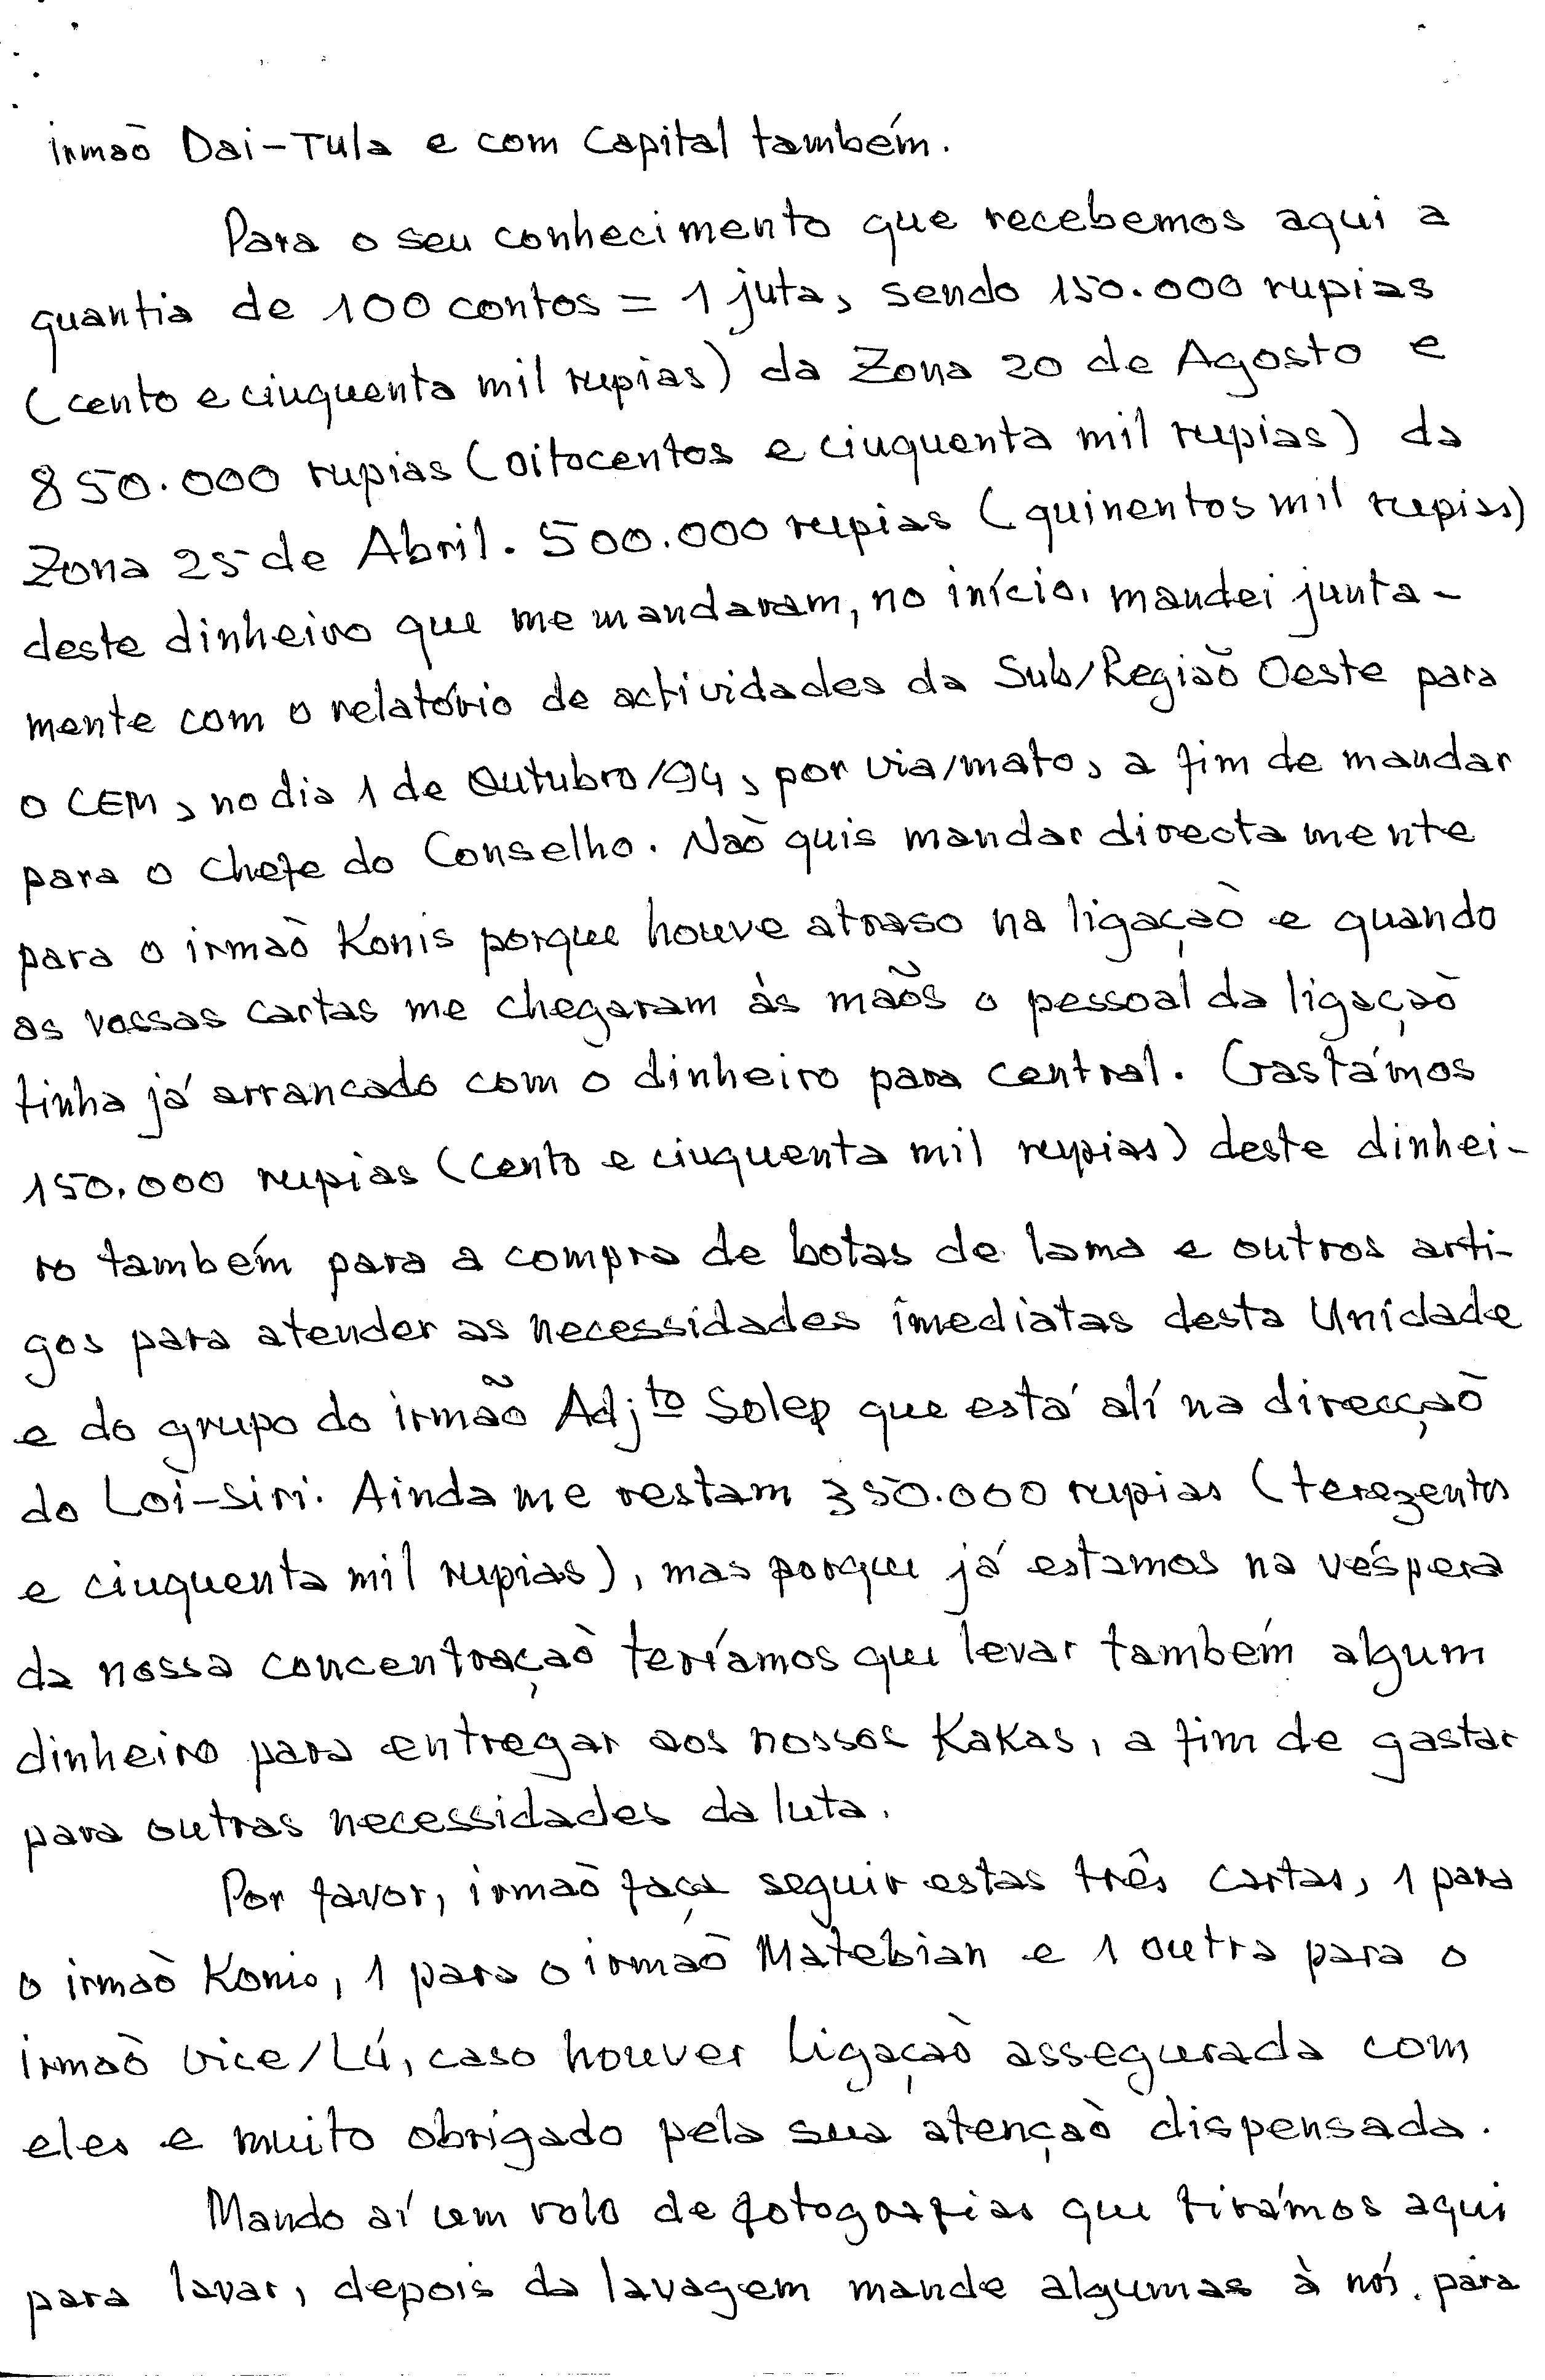 irmão Dai-Tula e com Capital também.
Para o seu conhecimento que recebemos aqui a
quantia de 100 contos = 1 juta, sendo 150.000 rupias
(cento e cinquenta mil rupias) da Zona 20 de Agosto e
850.000 rupias (oitocentos e cinquenta mil rupias) da
Zona 25 de Abril. 500.000 rupias (quinentos mil rupias)
deste dinheiro que me mandaram, no início, mandei junta-
mente com o relatório de actividades da Sub/Região Oeste para
o CEM, no dia 1 de Outubro/94, por via/mato, a fim de mandar
para o Chefe do Conselho. Não quis mandar directamente
para o irmão Konis porque houve atraso na ligação e quando
as vossas cartas me chegaram às mãos o pessoal da ligação
tinha já arrancado com o dinheiro para central. Gastámos
150.000 rupias (cento e cinquenta mil rupias) deste dinhei-
ro também para a compra de botas de lama e outros arti-
gos para atender as necessidades imediatas desta Unidade
e do grupo do irmão Adjto Solep que está alí na direcção
do Loi-siri. Ainda me restam 350.000 rupias (terezentos
e cinquenta mil rupias), mas porque já estamos na véspera
da nossa concentração teríamos que levar também algum
dinheiro para entregar aos nossos Kakas, a fim de gastar
para outras necessidades da luta.
Por favor, irmão faça seguir estas três cartas, 1 para
o irmão Konis, 1 para o irmão Matebian e 1 outra para o
irmão vice/Lú, caso houver ligação assegurada com
eles e muito obrigado pela sua atenção dispensada.
Mando aí um rolo de fotografias que tirámos aqui
para lavar, depois da lavagem mande algumas à nós. para